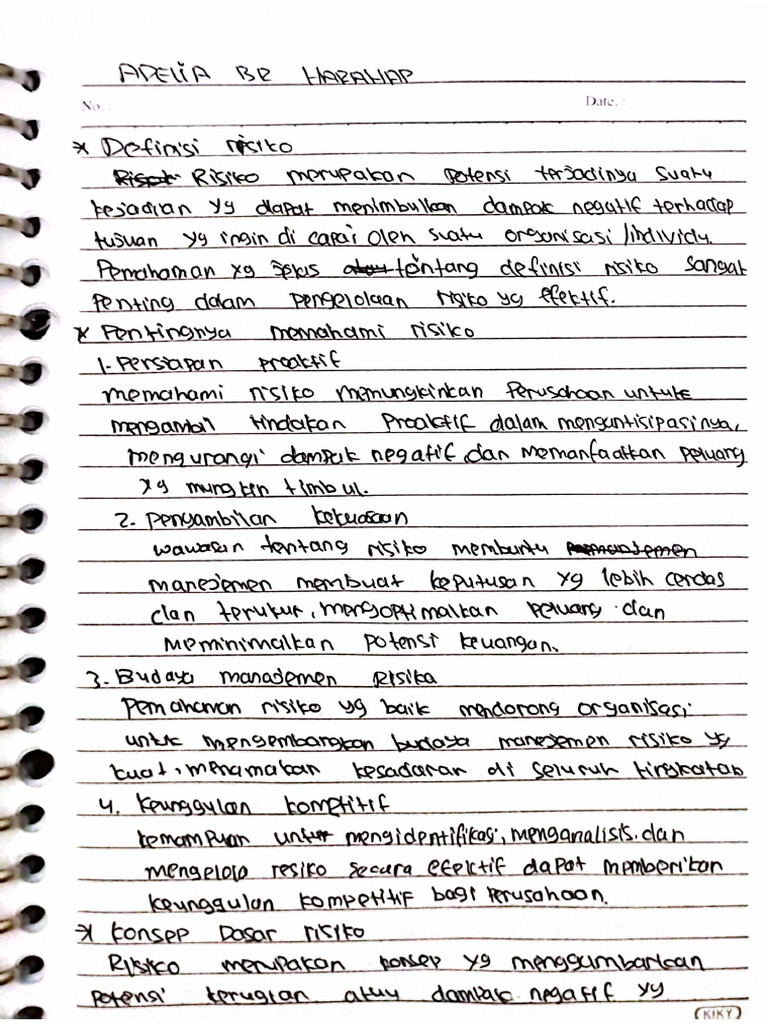 ADELIA BR HARAHAP
No. :
Date. :
* Definisi risiko
Risiko merupakan potensi terjadinya suatu
kejadian yg dapat menimbulkan dampak negatif terhadap
tujuan yg ingin di capai oleh suatu organisasi /individu.
Pemahaman yg jelas tentang definisi risiko sangat
penting dalam pengelolaan risiko yg efektif.
* Pentingnya memahami risiko
1. Persiapan proaktif
memahami risiko memungkinkan Perusahaan untuk
mengambil tindakan Proaktif dalam mengantisipasinya,
mengurangi dampak negatif dan memanfaatkan peluang
yg mungkin timbul.
2. Pengambilan
wawasan tentang risiko membantu
manejemen membuat keputusan yg lebih cerdas
dan terukur, mengoptimalkan peluang dan
meminimalkan potensi keuangan.
3. Budaya manademen Risika
Pemahaman risiko yg baik mendorong organisasi
untuk mengembangkan budaya manejemen risiko yg
kuat, menamakan kesadaran di seluruh tingkatan
4. Keunggulan kompetitif
kemampuan untuk mengidentifikasi, menganalisis dan
mengelola resiko secara efektif dapat memberikan
keunggulan kompetitif bagi Perusahaan.
* Konsep Dasar risiko
Risiko merupakan konsep yg menggambarkan
potensi kerugian atau dampak negatif yg
KIKY